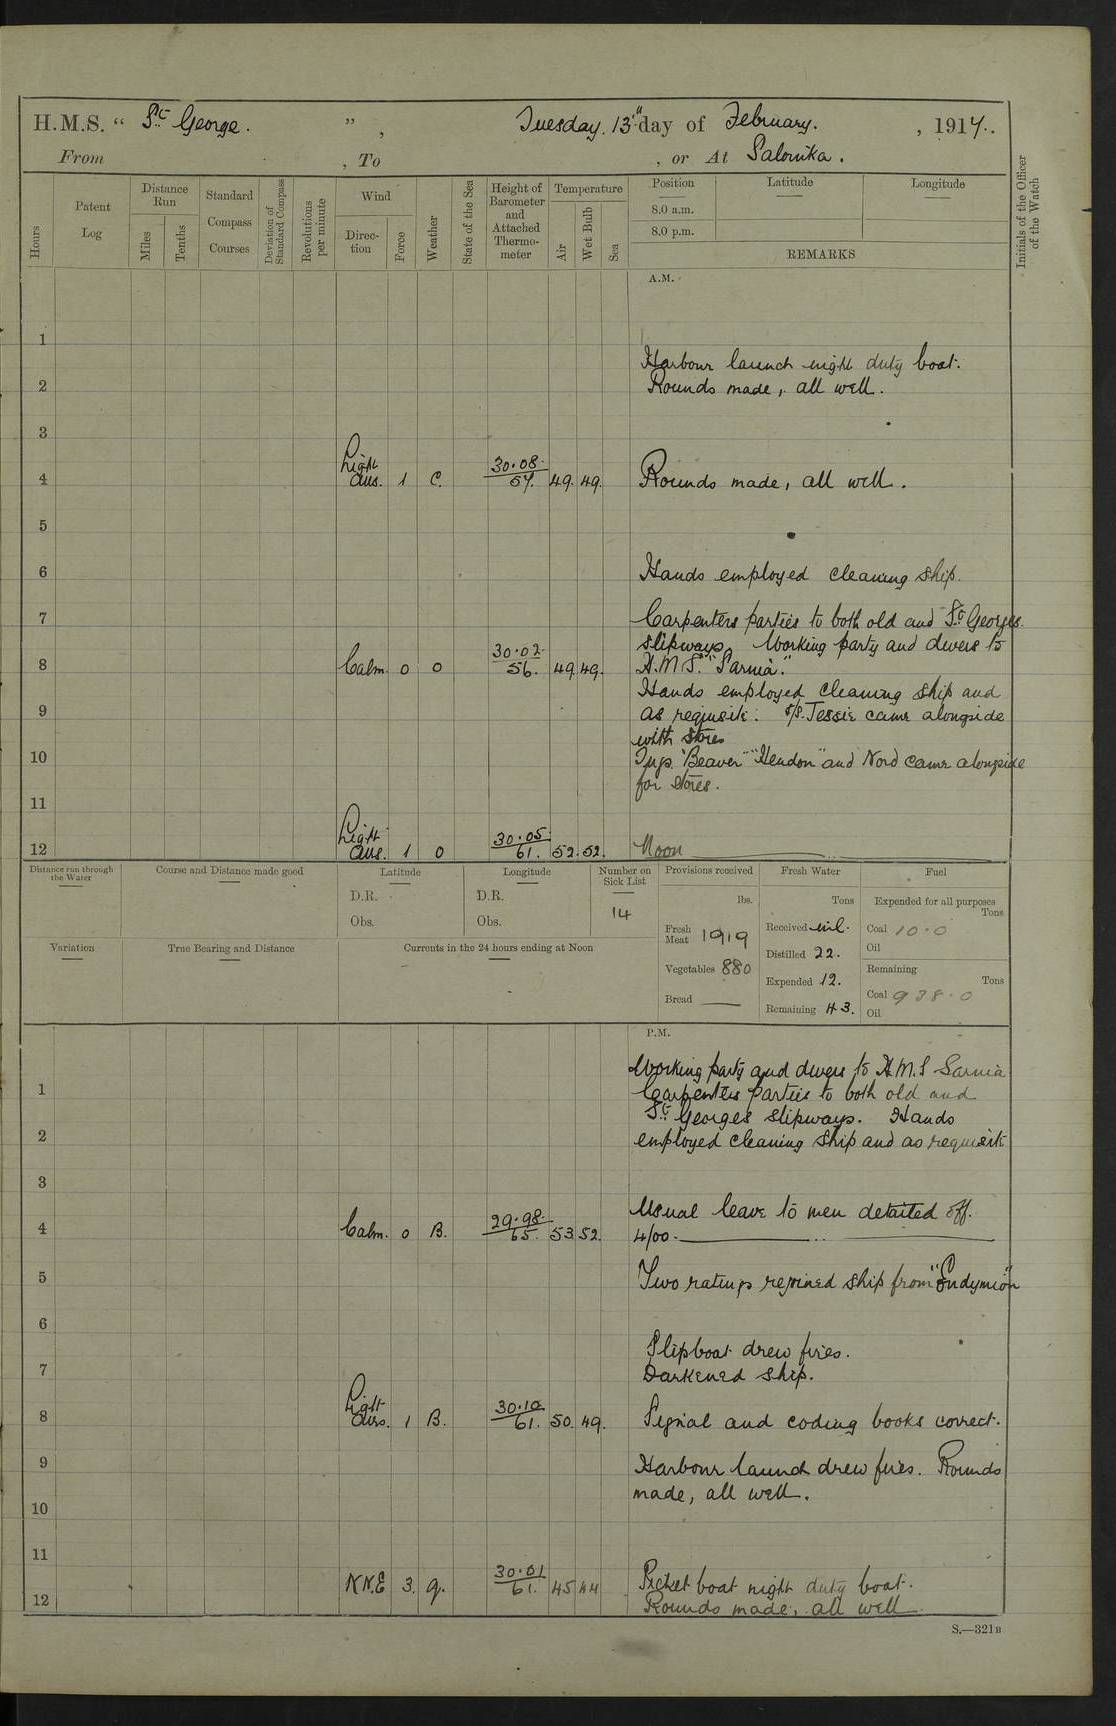 H.M.S. “ St George. ” , Tuesday. 13th day of February. , 1917.
From , To , or At Salonika.
Hours
Patent Log
Distance Run
Miles
Tenths
Standard Compass Courses
Deviation of Standard Compass
Revolutions per minute
Wind
Direction
Force
Weather
State of the Sea
Height of Barometer and Attached Thermometer
Temperature
Air
Wet Bulb
Sea
Position Latitude Longitude
8.0 a.m.
8.0 p.m.
REMARKS
Initials of the Officer of the Watch
A.M.
1
Harbour launch night duty boat.
2 Rounds made, all well.
3
4 Light Aus. 1 C. 30.08 57. 49. 49. Rounds made, all well.
5
6 Hands employed cleaning ship.
7 Carpenters parties to both old and St Georges
slipways. Working party and divers to
8 Calm 0 0 30.02 56. 49 49. H.M.S. "Sarnia".
Hands employed cleaning ship and
9 as requisite. S/S. Jessie came alongside
with stores
10 Tugs. "Beaver" "Hendon" and Nord came alongside
for stores.
11
12 Light Aus. 1 0 30.05 61. 52. 52. Noon
Distance run through the Water
Course and Distance made good
Latitude
D.R.
Obs.
Longitude
D.R.
Obs.
Number on Sick List
14
Provisions received
lbs.
Fresh Meat 1919
Vegetables 880
Bread
Fresh Water
Tons
Received nil.
Distilled 22.
Expended 12.
Remaining 43.
Fuel
Expended for all purposes
Tons
Coal 10.0
Oil
Remaining
Tons
Coal 938.0
Oil
Variation
True Bearing and Distance
Currents in the 24 hours ending at Noon
P.M.
Working party and divers to H.M.S Sarnia
1 Carpenters parties to both old and
St Georges slipways. Hands
2 employed cleaning ship and as requisite
3
Usual leave to men detailed off.
4 Calm. 0 B. 29.98 65. 53 52. 4/00.
5 Two ratings rejoined ship from "Endymion"
6
Slipboat drew fires.
7 Darkened ship.
8 Light Airs. 1 B. 30.10 61. 50. 49. Signal and coding books correct.
9 Harbour launch drew fires. Rounds
made, all well.
10
11
12 NNE 3. g. 30.01 61. 45 44 Picket boat night duty boat.
Rounds made, all well
S.—321B